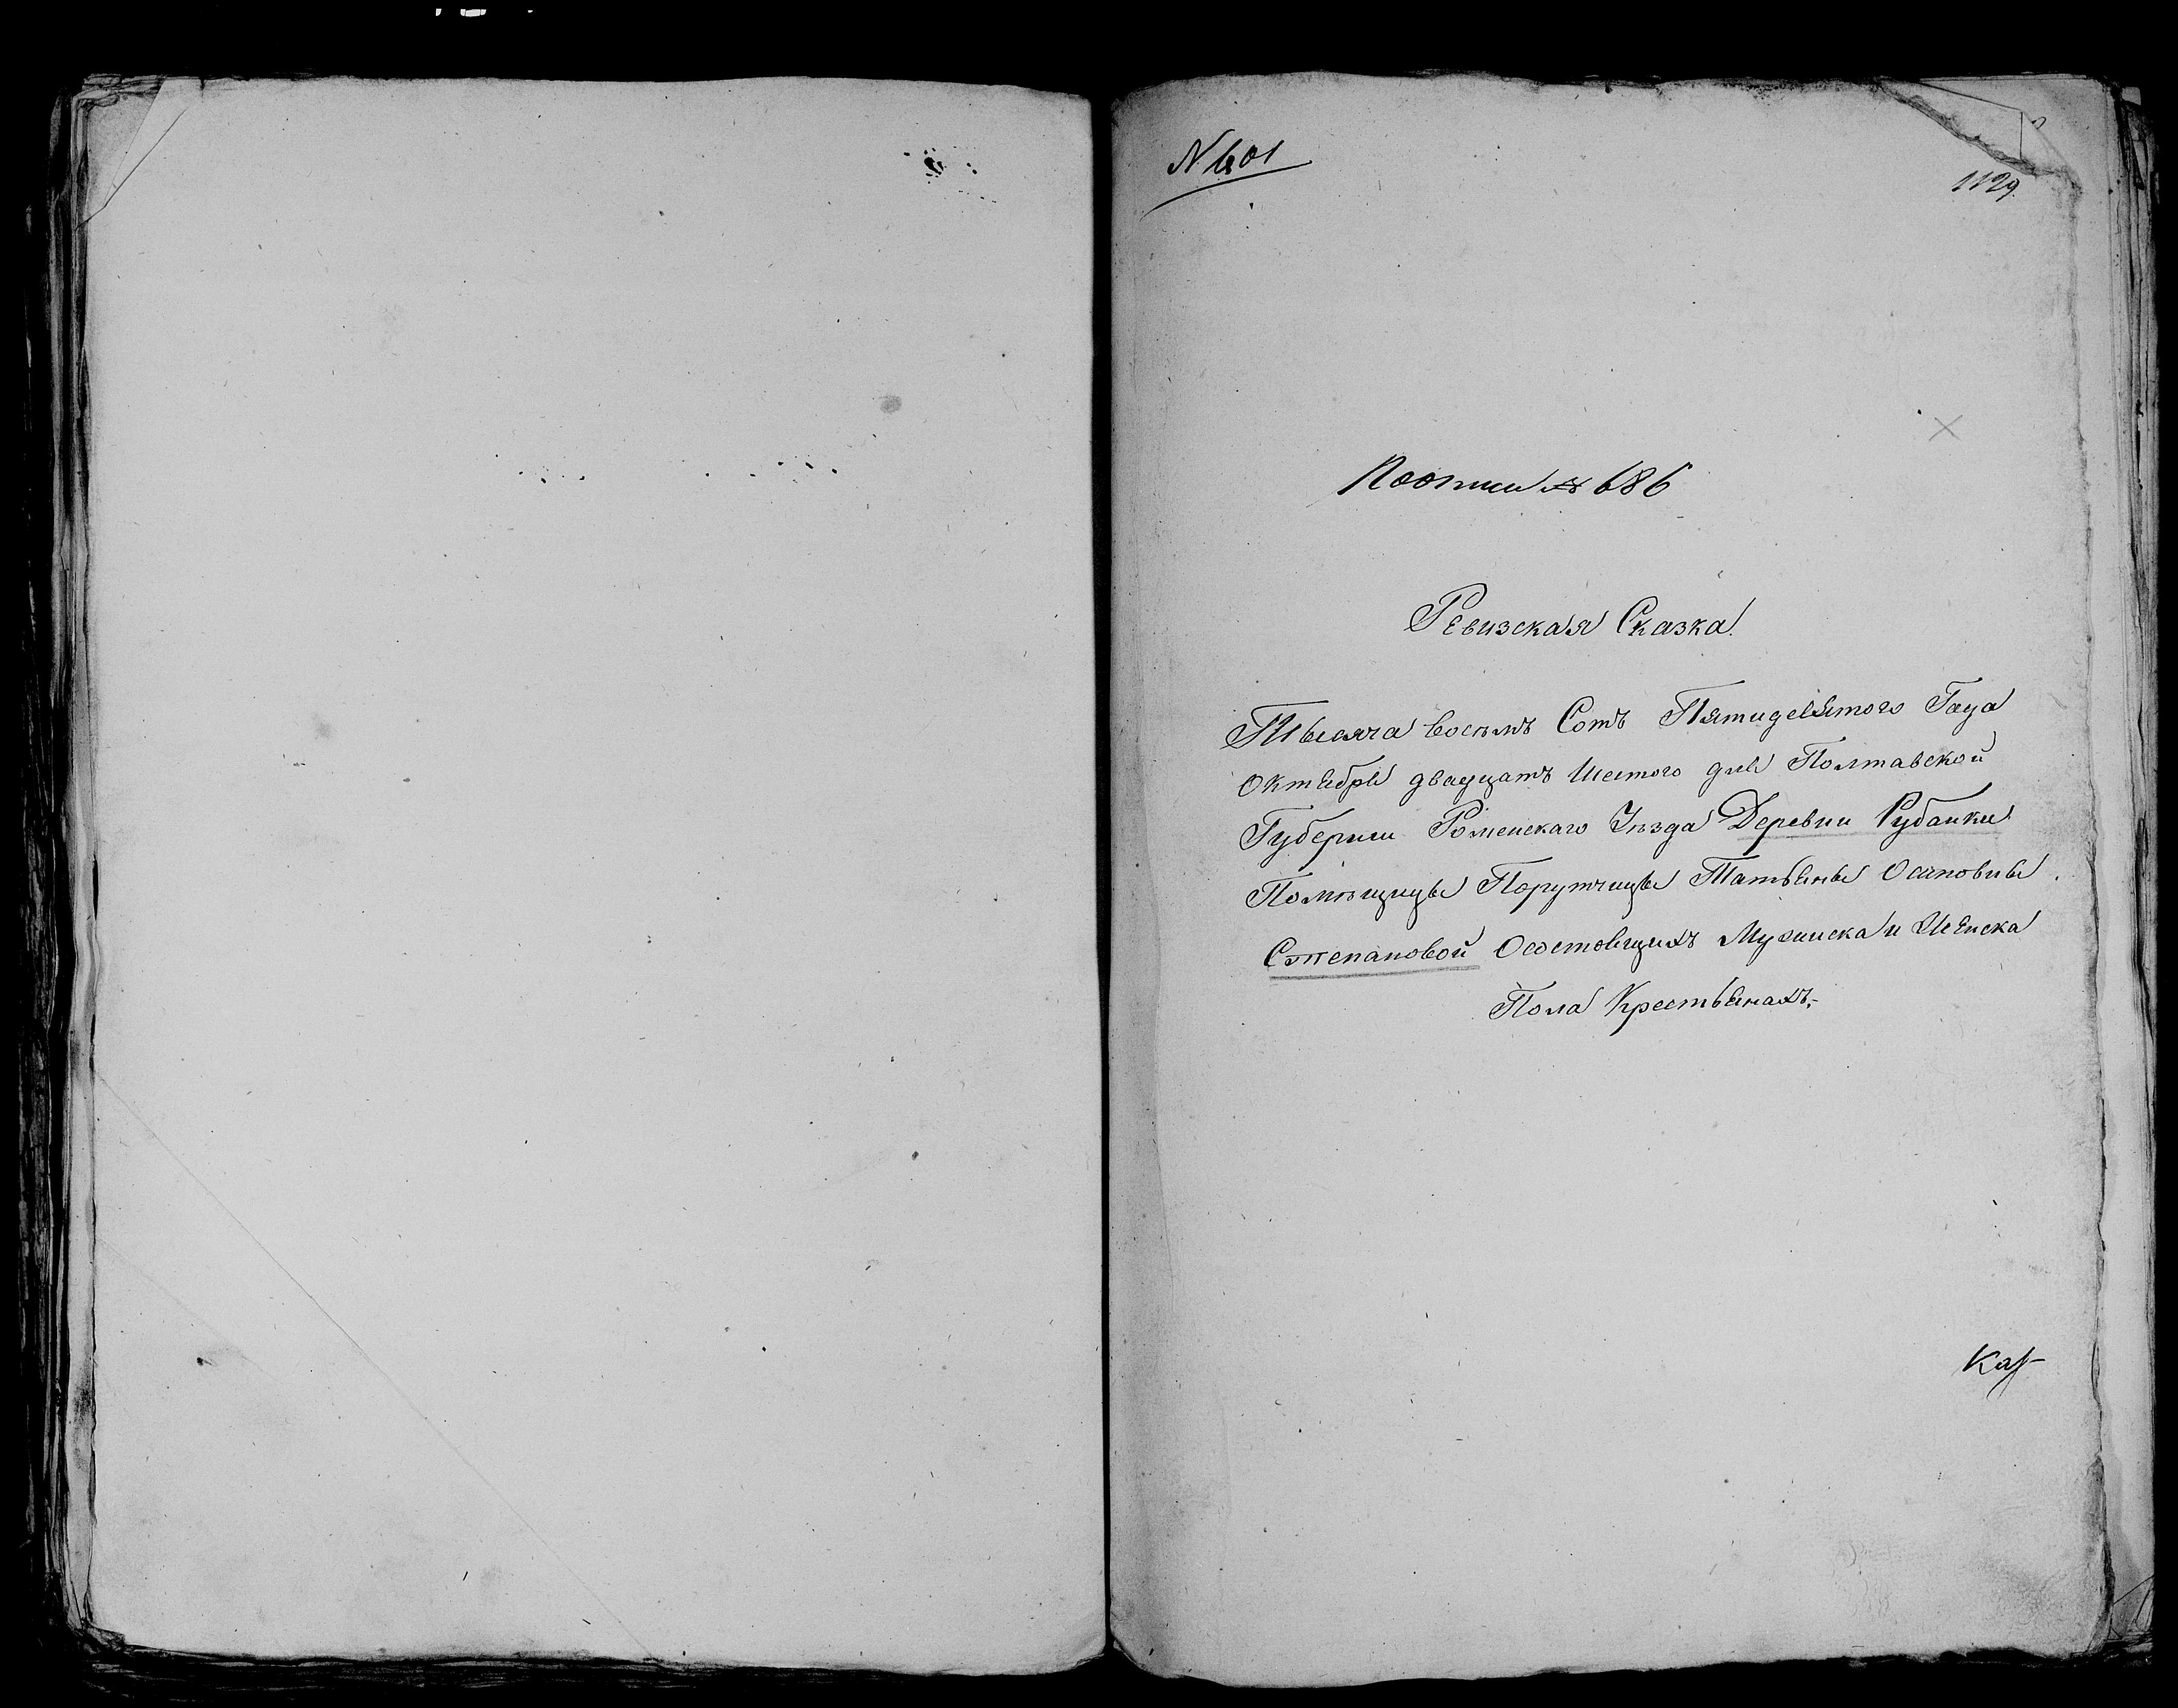 N 601
1129
По описи № 686
Ревизская Сказка.
Тысяча восемъ Сотъ Пятидесятого Года
Октября двадцать Шестого дня Полтавской
Губернии Роменскаго Уезда Деревни Рубанки
Помѣщицы Порутчицы Татьяны Осиповны
Степановой Осостоящихъ Мужиска и Женска
Пола Крестьянахъ.